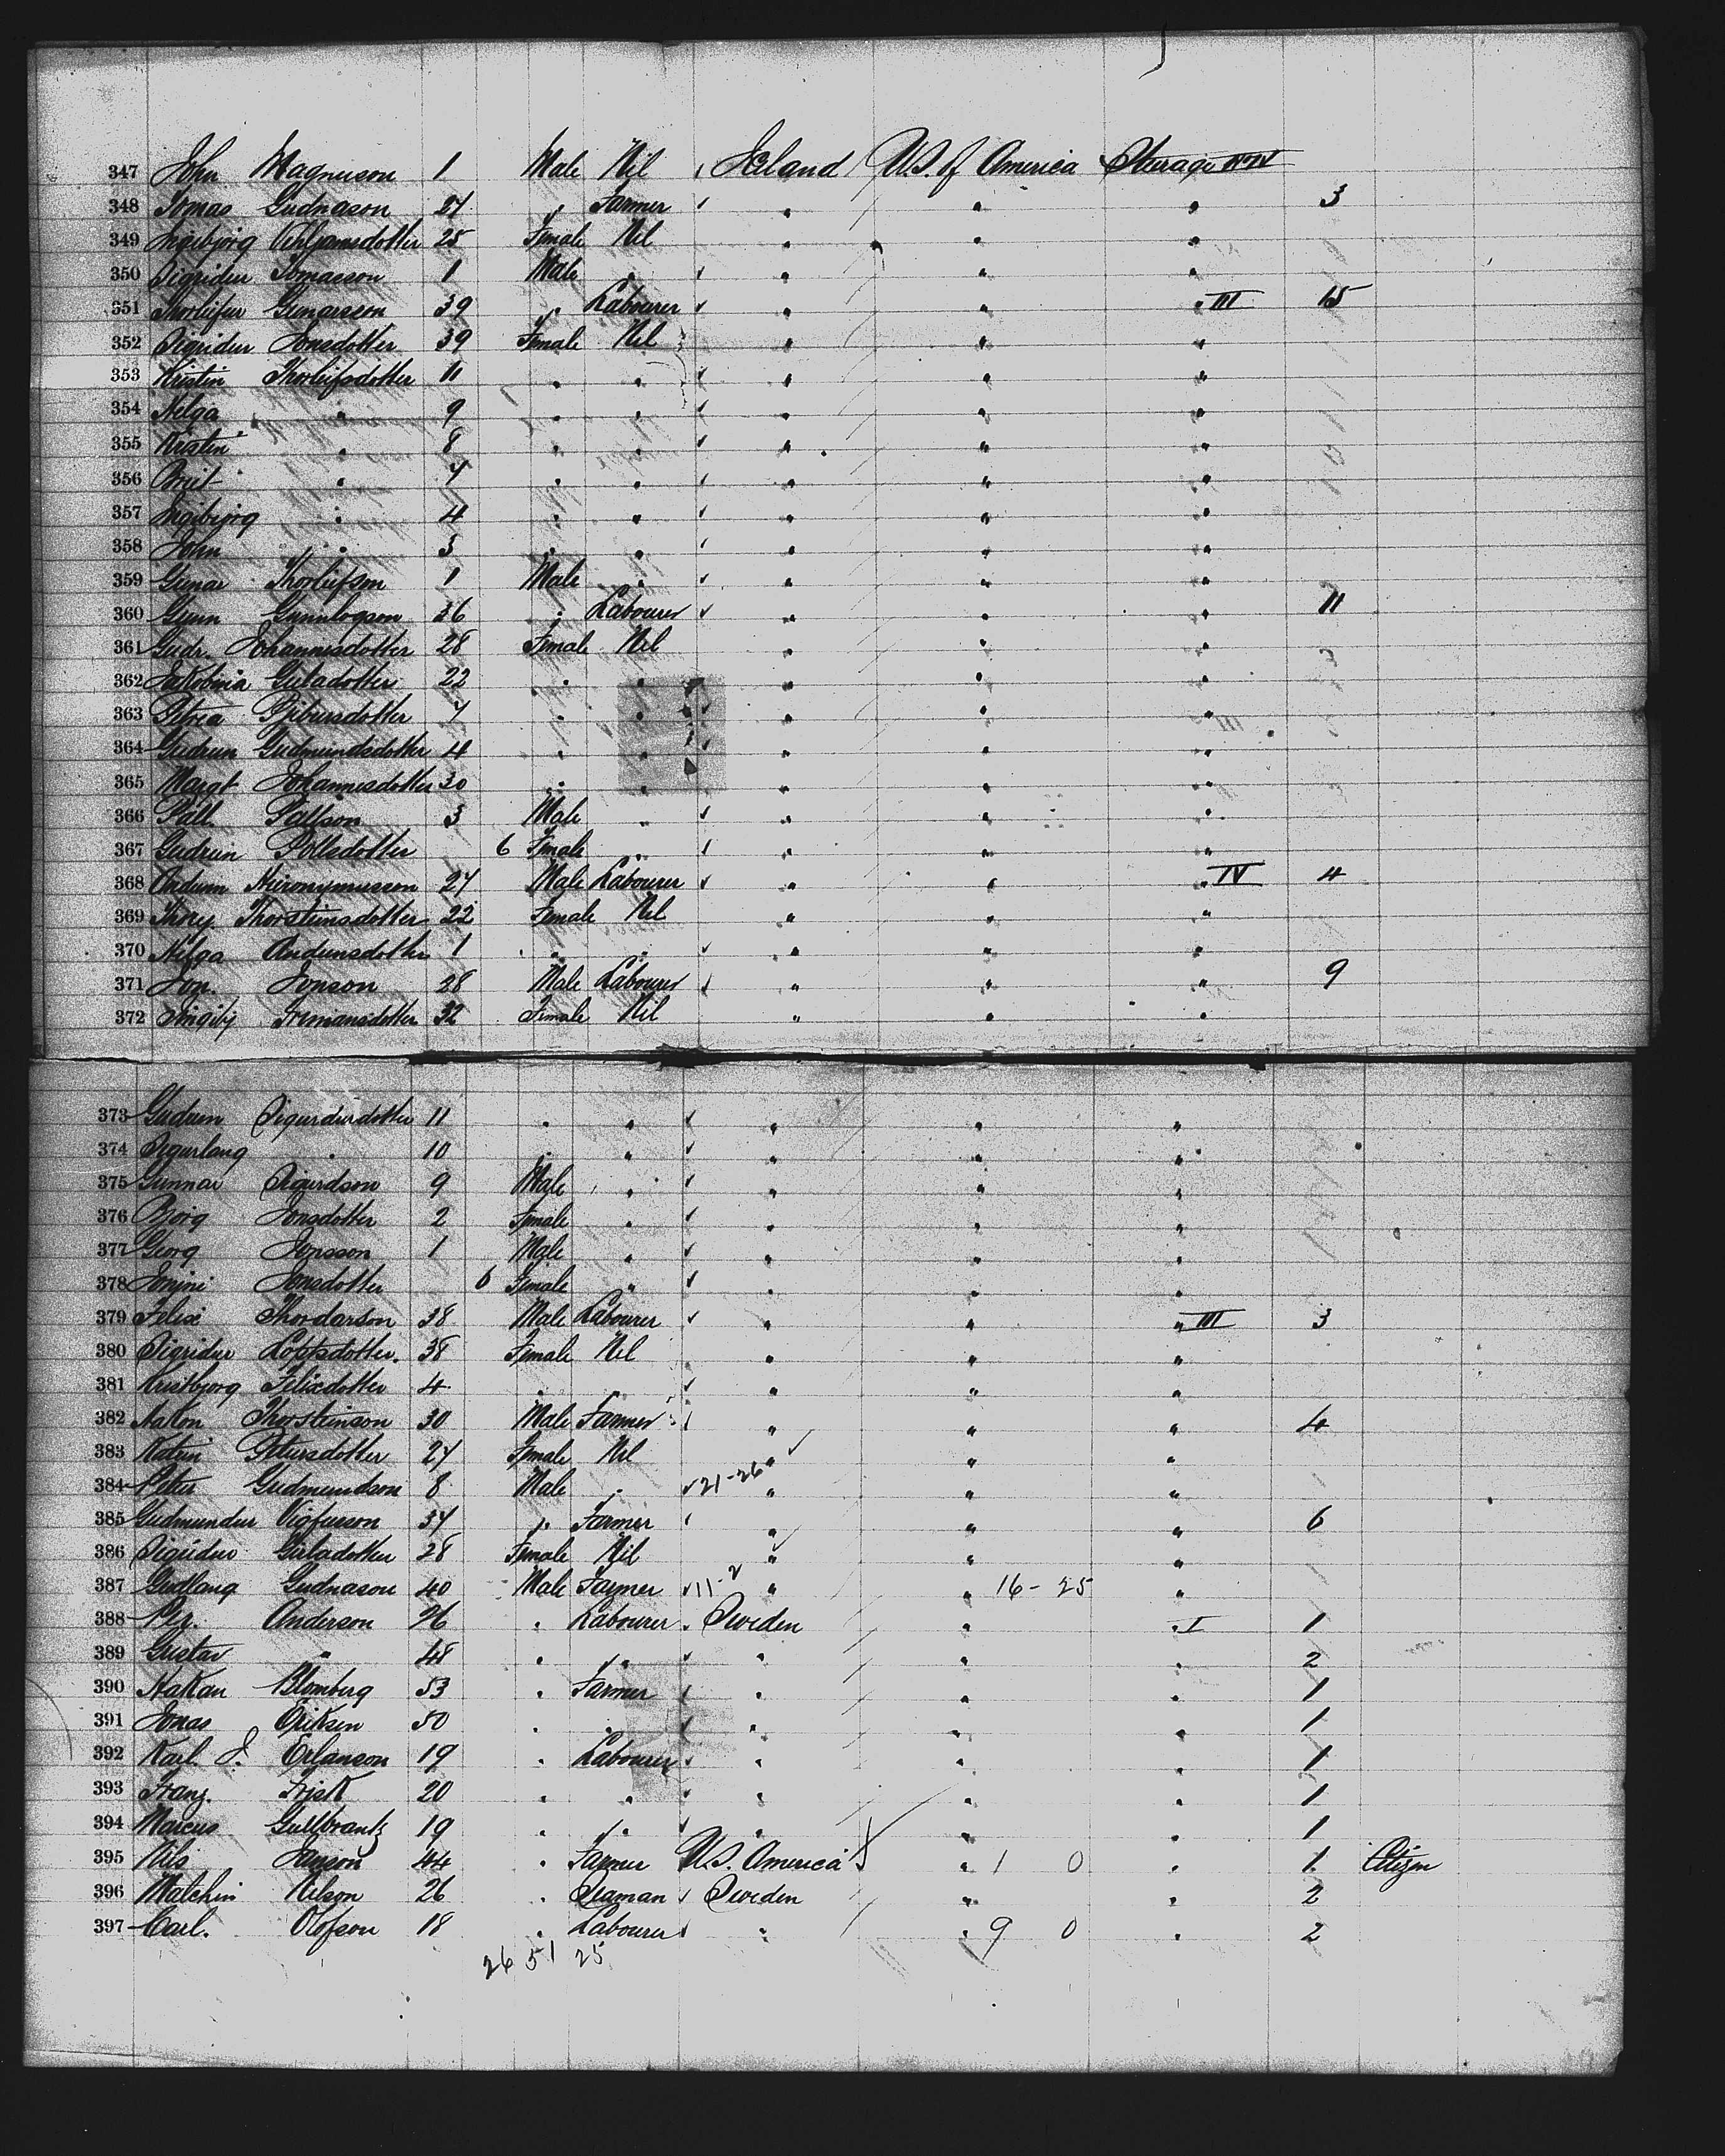 347 John Magnuson 1 Male Nil Iceland U.S. of America Steerage IV
348 Tomas Gudnason 27 " Farmer " " " 3
349 Ingebjorg Vihljamsdotter 25 Female Nil " " "
350 Sigridur Tomasson 1 Male " " " "
351 Thorleifur Gunarsson 39 " Labourer " " " III 15
352 Sigridur Jonsdotter 39 Female Nil " " "
353 Kristin Thorleifsdotter 11 " " " " "
354 Helga " 9 " " " " "
355 Kristin " 8 " " " " "
356 Briet " 7 " " " " "
357 Ingibjorg " 4 " " " " "
358 John " 3 " " " " "
359 Gunar Thorleifson 1 Male " " " "
360 Gunn Gunnlogson 36 " Labourer " " " 11
361 Gudr. Johannisdotter 28 Female Nil " " "
362 Jakobina Gisladotter 22 " " " " "
363 Petrea Bjibursdotter 7 " " " " "
364 Gudrun Gudmundsdotter 4 " " " " "
365 Margt Johannesdotter 30 " " " " "
366 Pall Pallson 3 Male " " " "
367 Gudrun Pollsdotter 6 Female " " " "
368 Andunn Hieronymusson 27 Male Labourer " " " IV 4
369 Thory Thorsteinsdotter 22 Female Nil " " "
370 Helga Andunsdotter 1 " " " " "
371 Jon. Jonson 28 Male Labourer " " " 9
372 Tremansdotter 32 Female Nil " " "
373 Gudrun Sigurdurdotter 11 " " " " "
374 Sigurlang " 10 " " " " "
375 Gunnar Sigurdson 9 Male " " " "
376 Bjorg Jonsdotter 2 Female " " " "
377 Georg Jonsson 1 Male " " " "
378 Jonini Jonsdotter 6 Female " " " "
379 Felix Thordarson 38 Male Labourer " " " III 3
380 Sigridur Loptsdotter. 38 Female Nil " " "
381 Kristbjorg Felixdotter 4 " " " "
382 Hakon Thorsteinson 30 Male Farmer " " " 4
383 Katrin Petursdotter 27 Female Nil " " "
384 Peter Gudmundson 8 Male " 21-26 " " "
385 Gudmundur Vigfusson 37 " Farmer " " " 6
386 Sigridur Gisladotter 28 Female Nil " " "
387 Gudlaug Gudnason 40 Male Farmer 11-2 " " 16-25 "
388 Per. Anderson 26 " Labourer Sweden " " I 1
389 Gustav " 48 " " " " " 2
390 Hakan Blomberg 53 " Farmer " " " 1
391 Jonas Eriksen 50 " " " " " 1
392 Karl J. Erlanson 19 " Labourer " " " 1
393 Franz. Frisk 20 " " " " " 1
394 Marcus Gullbrantz 19 " " " " " 1
395 Nils Janson 44 " Farmer U.S. America " 1 0 " 1 Citizen
396 Malchin Nilson 26 " Seaman Sweden " " 2
397 Carl. Olofson 18 " Labourer " " 9 0 " 2
26 51 25